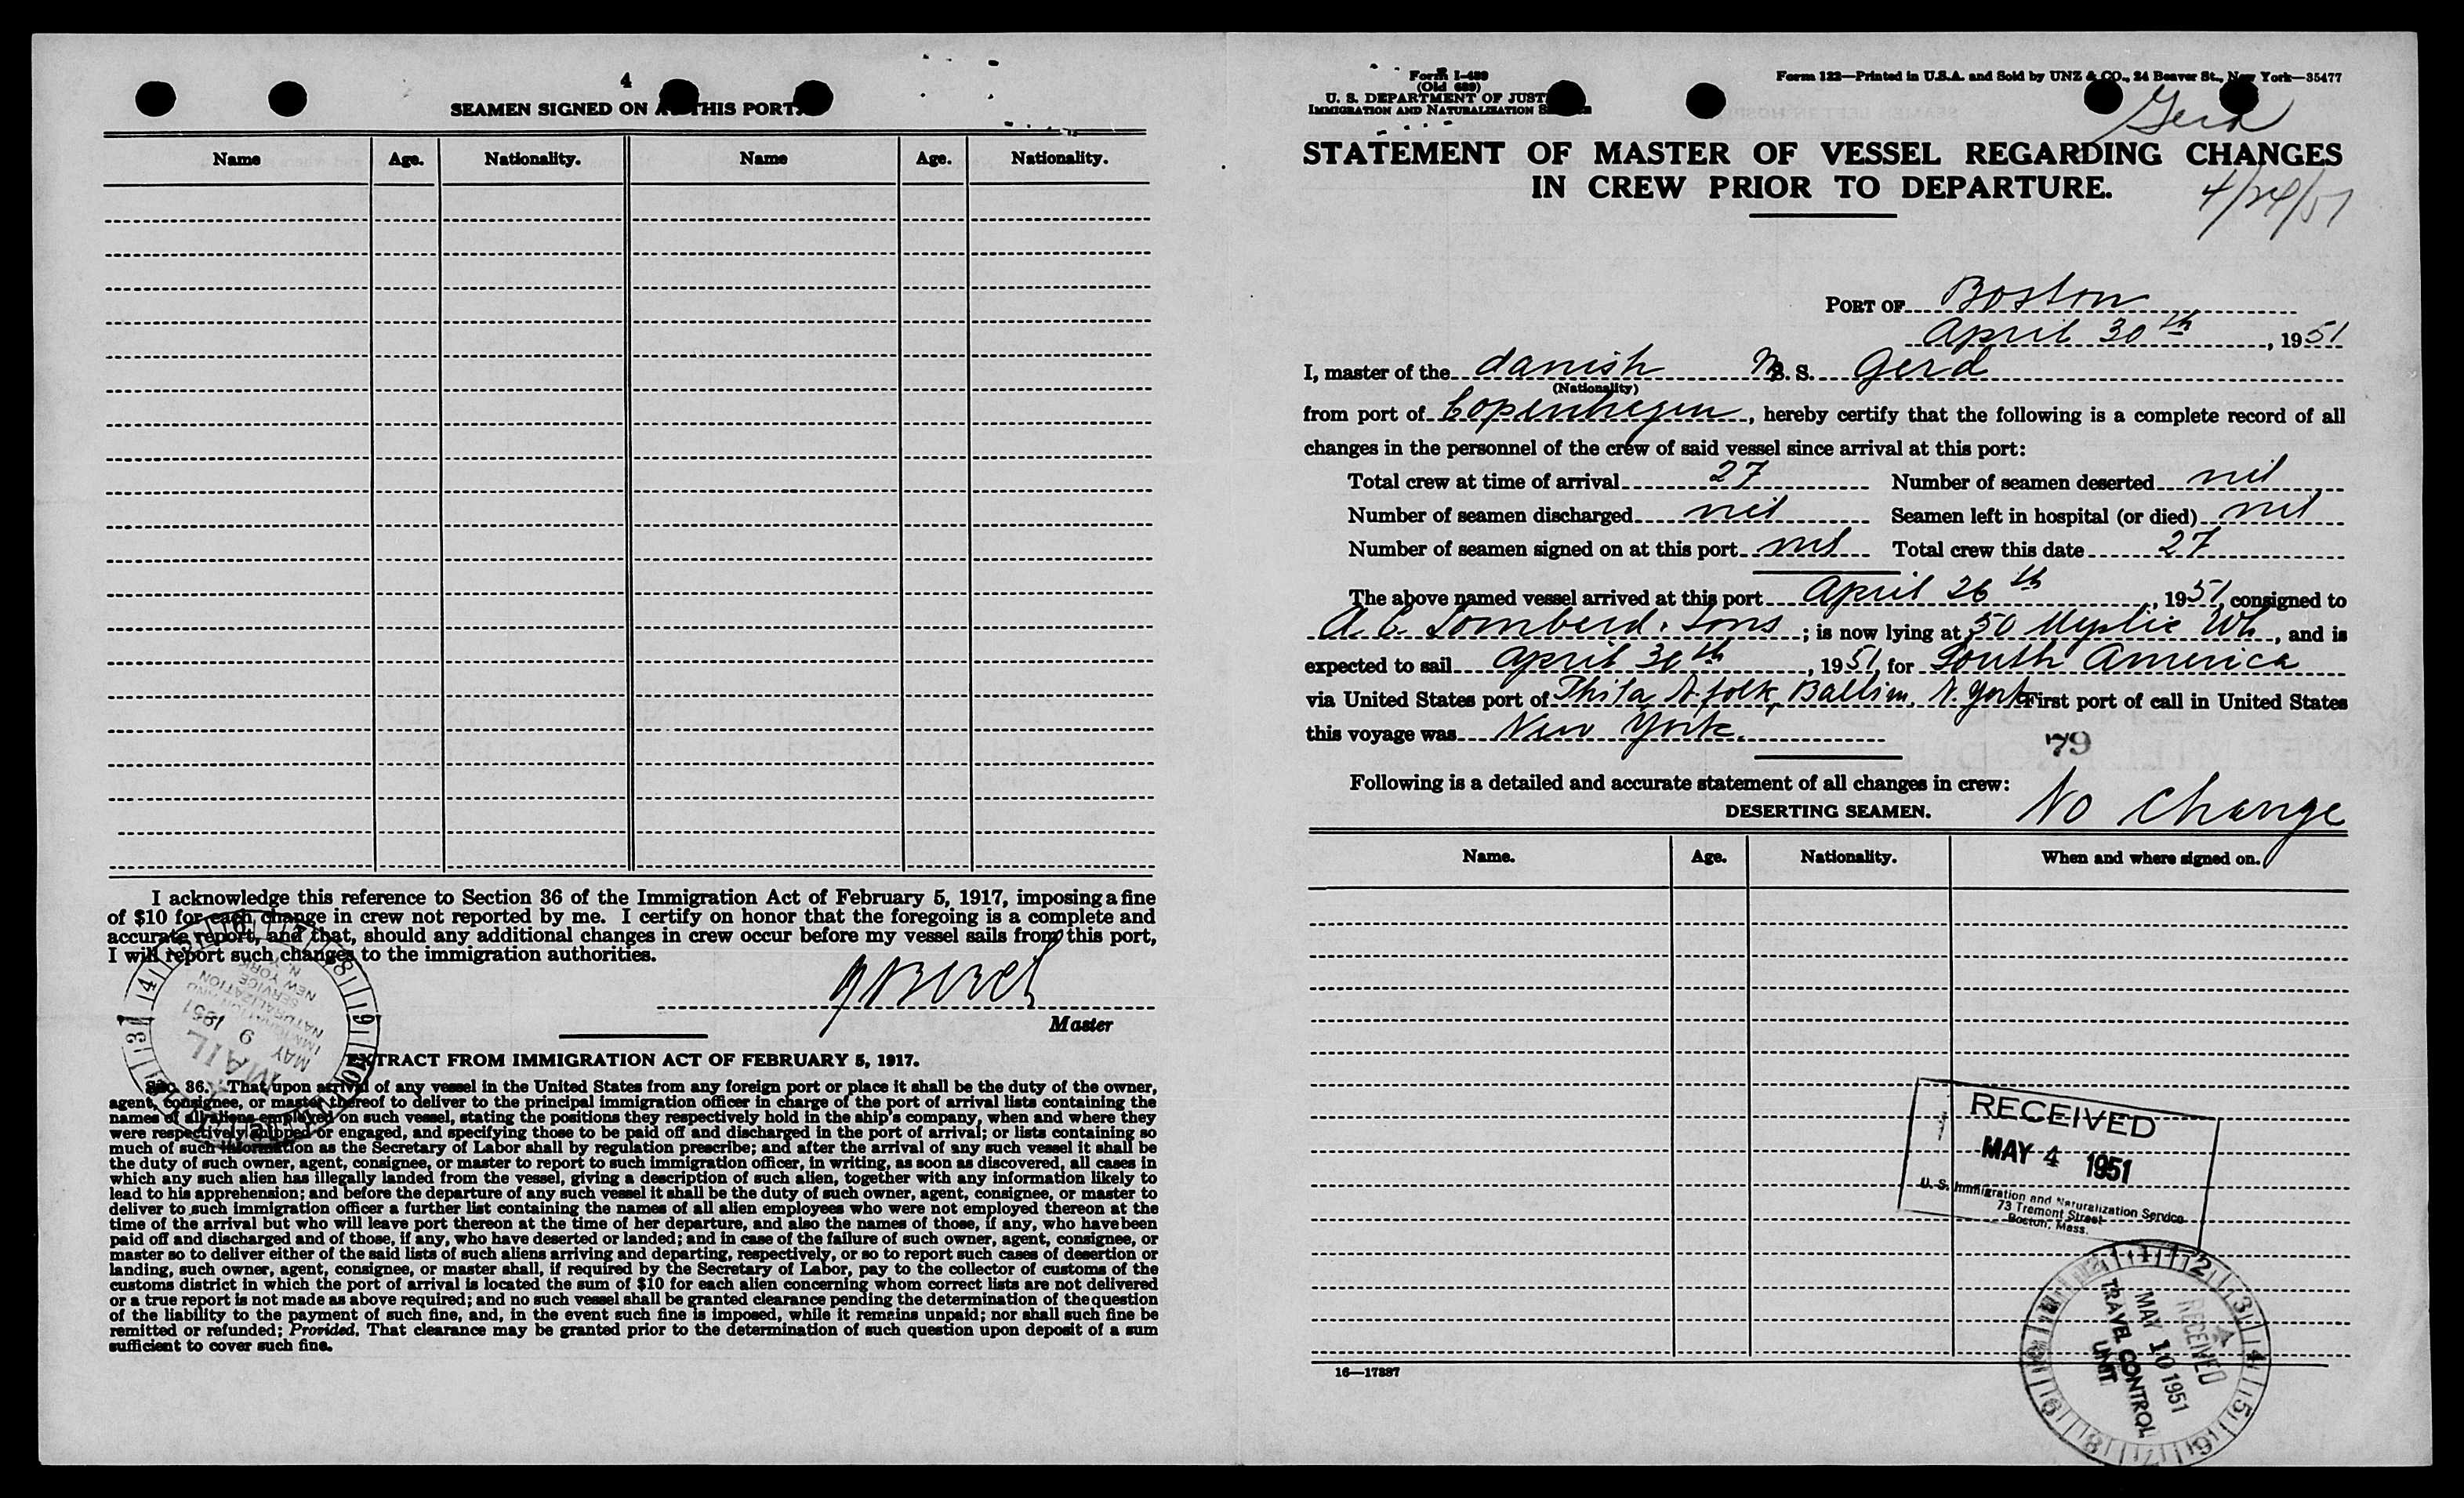 4
SEAMEN SIGNED ON AT THIS PORT.
Name Age. Nationality. Name Age. Nationality.
I acknowledge this reference to Section 36 of the Immigration Act of February 5, 1917, imposing a fine
of $10 for each change in crew not reported by me. I certify on honor that the foregoing is a complete and
accurate report, and that, should any additional changes in crew occur before my vessel sails from this port,
I will report such changes to the immigration authorities.
Master
MAIL
MAY 9 1951
IMMIGRATION AND
NATURALIZATION
SERVICE
NEW YORK
N. YORK
EXTRACT FROM IMMIGRATION ACT OF FEBRUARY 5, 1917.
Sec. 36. That upon arrival of any vessel in the United States from any foreign port or place it shall be the duty of the owner,
agent, consignee, or master thereof to deliver to the principal immigration officer in charge of the port of arrival lists containing the
names of all aliens employed on such vessel, stating the positions they respectively hold in the ship's company, when and where they
were respectively shipped or engaged, and specifying those to be paid off and discharged in the port of arrival; or lists containing so
much of such information as the Secretary of Labor shall by regulation prescribe; and after the arrival of any such vessel it shall be
the duty of such owner, agent, consignee, or master to report to such immigration officer, in writing, as soon as discovered, all cases in
which any such alien has illegally landed from the vessel, giving a description of such alien, together with any information likely to
lead to his apprehension; and before the departure of any such vessel it shall be the duty of such owner, agent, consignee, or master to
deliver to such immigration officer a further list containing the names of all alien employees who were not employed thereon at the
time of the arrival but who will leave port thereon at the time of her departure, and also the names of those, if any, who have been
paid off and discharged and of those, if any, who have deserted or landed; and in case of the failure of such owner, agent, consignee, or
master so to deliver either of the said lists of such aliens arriving and departing, respectively, or so to report such cases of desertion or
landing, such owner, agent, consignee, or master shall, if required by the Secretary of Labor, pay to the collector of customs of the
customs district in which the port of arrival is located the sum of $10 for each alien concerning whom correct lists are not delivered
or a true report is not made as above required; and no such vessel shall be granted clearance pending the determination of the question
of the liability to the payment of such fine, and, in the event such fine is imposed, while it remains unpaid; nor shall such fine be
remitted or refunded; Provided, That clearance may be granted prior to the determination of such question upon deposit of a sum
sufficient to cover such fine.
Form I-489
(Old 689)
U. S. DEPARTMENT OF JUST
IMMIGRATION AND NATURALIZATION S
Form 122—Printed in U.S.A. and Sold by UNZ & CO., 24 Beaver St., New York—35477
Gerd
STATEMENT OF MASTER OF VESSEL REGARDING CHANGES
IN CREW PRIOR TO DEPARTURE.
4/24/51
PORT OF Boston
April 30th, 1951
I, master of the danish M. S. Gerd
(Nationality)
from port of Copenhagen, hereby certify that the following is a complete record of all
changes in the personnel of the crew of said vessel since arrival at this port:
Total crew at time of arrival 27 Number of seamen deserted nil
Number of seamen discharged nil Seamen left in hospital (or died) nil
Number of seamen signed on at this port nil Total crew this date 27
The above named vessel arrived at this port April 26th, 1951, consigned to
A. C. Lomberd. Sons; is now lying at 50 Mystic Wh., and is
expected to sail April 30th, 1951, for South America
via United States port of Phila, N.folk, Baltim, N. York First port of call in United States
this voyage was New York.
79
Following is a detailed and accurate statement of all changes in crew:
DESERTING SEAMEN.
No Change
Name. Age. Nationality. When and where signed on.
RECEIVED
MAY 4 1951
U. S. Immigration and Naturalization Service
73 Tremont Street
Boston, Mass.
RECEIVED
MAY 10 1951
TRAVEL CONTROL
UNIT
16—17287